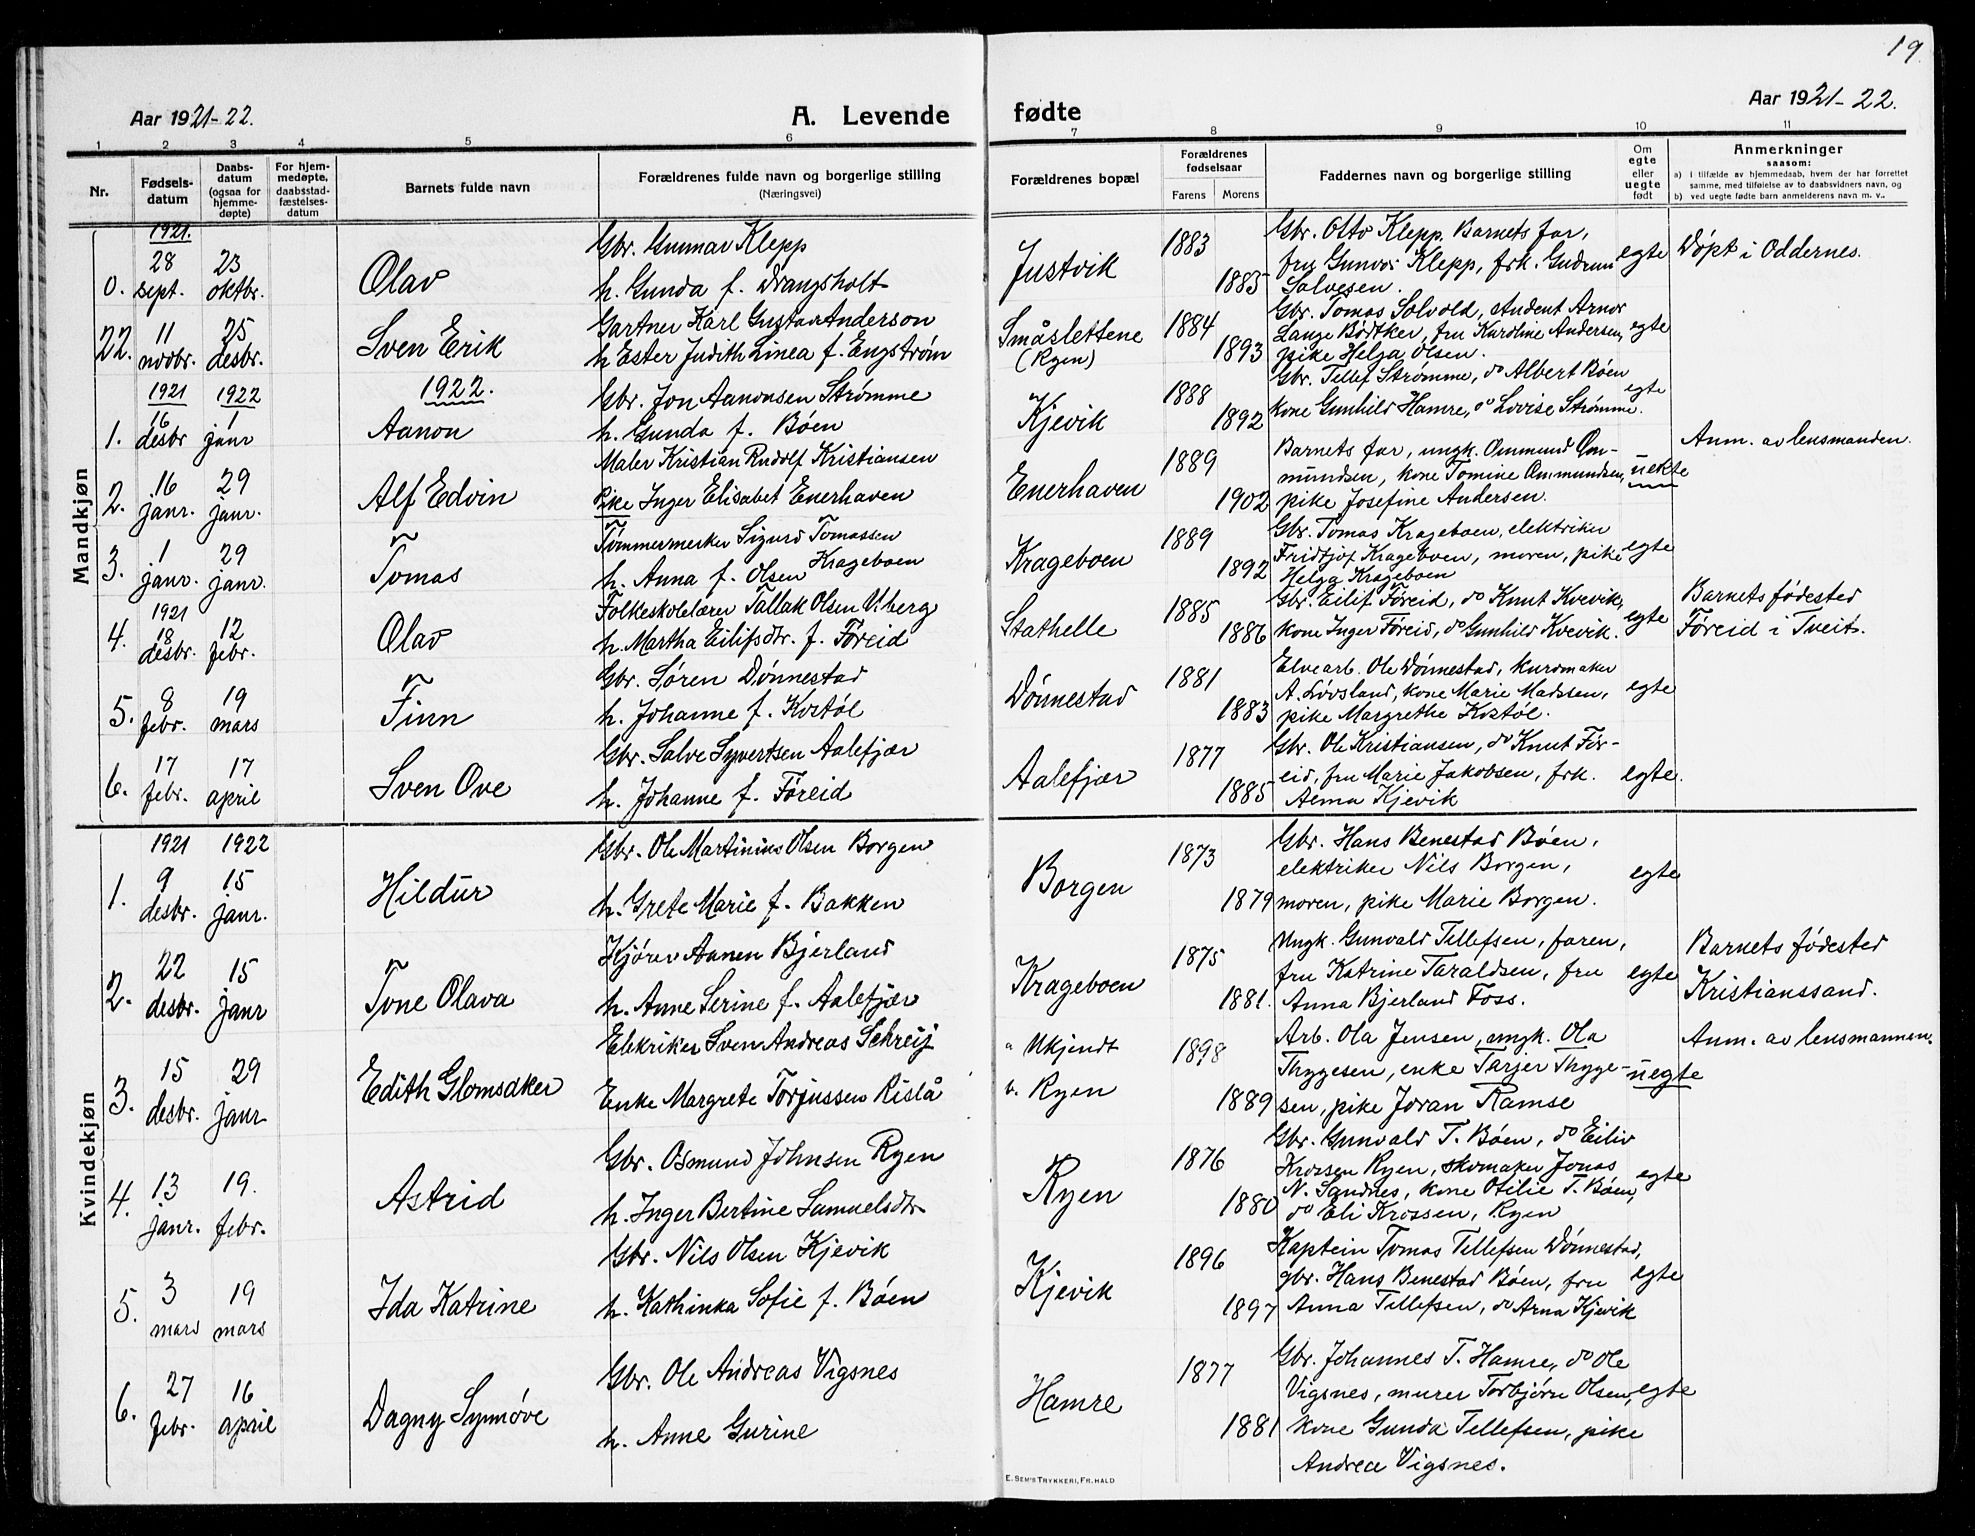 19.
Aar 1921-22. A. Levende fødte Aar 1921-22.
1 2 3 4 5 6 7 8 9 10 11
Nr. Fødselsdatum Daabsdatum (ogsaa for hjemmedøpte) For hjemmedøpte, daabsstadfæstelsesdatum Barnets fulde navn Forældrenes fulde navn og borgerlige stilling (Næringsvei) Forældrenes bopæl Forældrenes fødselsaar Farens Morens Faddernes navn og borgerlige stilling Om egte eller uegte født Anmerkninger saasom: a) I tilfælde av hjemmedaab, hvem der har forrettet samme, med tilføielse av to daabsvidners navn, og b) ved uegte fødte barn anmelderens navn m. v..
Mandkjøn
1921.
0. 28 sept. 23 oktbr. Olav
Gbr. Gunnar Klepp
h. Gunda f. Drangsholt
Justvik 1883 1885
Gbr. Otto Klepp, Barnets far,
fru Gunvor Klepp, frk. Gudrun
Salvesen.
egte Døpt i Oddernes.
22. 11 novbr. 25 desbr. Sven Erik
Gartner Karl Gustav Anderson
h Ester Judith Linea f. Engstrøm
Småslettene (Ryen) 1884 1893
Gbr. Tomas Solvold, student Arnor
Lange Bødtker, fru Karoline Andersen,
pike Helga Olsen.
egte
1921 1922 1922.
1. 16 desbr 1 janr Aanon
Gbr. Jon Aanonsen Strømme
h. Gunda f. Bøen
Kjevik 1888 1892
Gbr. Tellef Strømme, do Albert Bøen
kone Gunhild Hamre, do Lovise Strømme.
egte
2. 16 janr. 29 janr. Alf Edvin
Maler Kristian Rudolf Kristiansen
Pike Inger Elisabet Enerhaven
Enerhaven 1889 1902
Barnets far, ungk. Ommund Om-
mundsen, kone Tomine Ommundsen,
pike Josefine Andersen.
uekte Anm. av lensmanden.
3. 1 janr. 29 janr. Tomas
Tømmermerker Sigurd Tomassen
Krageboen
h. Anna f. Olsen
Krageboen 1889 1892
Gbr. Tomas Krageboen, elektriker
Fridtjof Krageboen, moren, pike
Helga Krageboen
egte
4. 1921 18 desbr. 12 febr. Olav
Folkeskolelærer Tallak Olsen Viberg
h. Martha Eilifsdtr. f. Føreid
Stathelle 1885 1886
Gbr. Eilif Føreid, do Knut Kvevik,
kone Inger Føreid, do Gunhild Kvevik.
egte Barnets fødested
Føreid i Tveit.
5. 8 febr. 19 mars Finn
Gbr. Søren Dønnestad
h. Johanne f. Kostøl
Dønnestad 1881 1883
Elvearb. Ole Dønnestad, kurvmaker
A. Løvsland, kone Marie Madssen,
pike Margrethe Kostøl.
egte
6. 17 febr. 17 april Sven Ove
Gbr. Salve Syvertsen Aalefjær
h. Johanne f. Føreid
Aalefjær 1877 1885
Gbr. Ole Kristiansen, do Knut Før-
eid, fru Marie Jakobsen, frk.
Alma Kjevik
egte.
Kvindekjøn
1921 1922
1. 9 desbr. 15 janr. Hildur
Gbr. Ole Martinius Olsen Borgen
h. Grete Marie f. Bakken
Borgen 1873 1879
Gbr. Hans Benestad Bøen,
elektriker Nils Borgen,
moren, pike Marie Borgen.
egte
2. 22 desbr. 15 janr Tone Olava
Kjører Aanen Bjerland
h. Anne Serine f. Aalefjær
Krageboen 1875 1881.
Ungk. Gunvald Tellefsen, faren,
fru Katrine Taraldsen, fru
Anna Bjerland Foss.
egte Barnets fødested
Kristianssand.
3. 15 desbr. 29 janr. Edith Glomsaker
Elekriker Sven Andreas Schreij
Enke Margrete Torjussen Rislå
a Ukjendt
b. Ryen
1898 1889
Arb. Ola Jensen, ungk. Ola
Thygesen, enke Tarjer Thyge-
sen, pike Joran Ramse
uegte Anm. av lensmannen.
4. 13 janr. 19. febr. Astrid
Gbr. Osmund Johnsen Ryen
h. Inger Bertine Samuelsdtr
Ryen 1876 1880
Gbr. Gunvald T. Bøen, do Eiliv
Krossen Ryen, skomaker Jonas
N. Sandnes, kone Otilie T. Bøen,
do Eli Krossen, Ryen
egte
5. 3 mars 19 mars Ida Katrine
Gbr. Nils Olsen Kjevik
h. Kathinka Sofie f. Bøen
Kjevik 1896 1897
Kaptein Tomas Tellefsen Dønnestad,
gbr. Hans Benestad Bøen, fru
Anna Tellefsen, do Arna Kjevik
egte
6. 27 febr. 16 april Dagny Synnøve
Gbr. Ole Andreas Vigsnes
h. Anne Gurine
Hamre 1877 1881
Gbr. Johannes T. Hamre, do Ole
Vigsnes, murer Torbjørn Olsen,
kone Gunda Tellefsen, pike
Andrea Vigsnes.
egte
E. Sem's Trykkeri, Fr. Hald